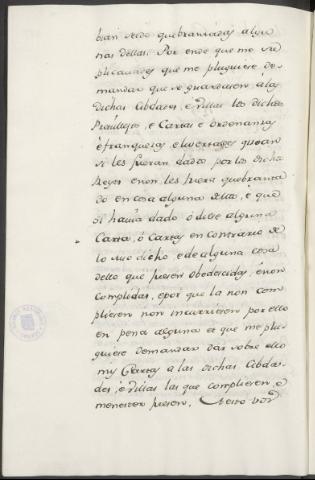 bian seido quebrantadas algu
nas dellas. Por ende que me su
plicauades que me pluguiese de
mandar que se guardasen a las
dichas Cibdades, e villas los dichos
Preuillejos, e Cartas e ordenanzas
e franquezas, e livertades que an
si les fueran dadas por los dichos
Reyes e non les fuera quebranta
do en cosa alguna dello, e que
si hauia dado o diese alguna
Carta, ó Cartas en contrario de
lo suso dicho, e de alguna cosa
dello que fuesen obedecidas, é non
complidas, e por que la non com
plieren non incurriesen por ello
en pena alguna et que me plu
guiese demandar dar sobre ello
mis Cartas a las dichas Cibda
des, e villas las que compliesen, e
menester fuesen. A esto vos